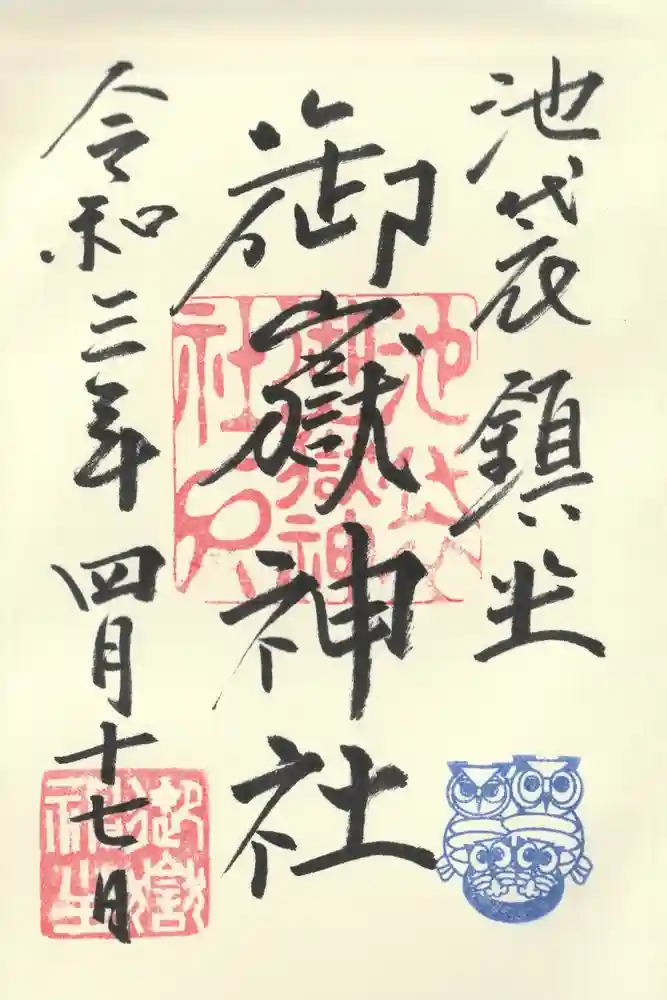 池袋鎮坐
御嶽神社
令和三年四月十七日
池袋
御嶽神
社